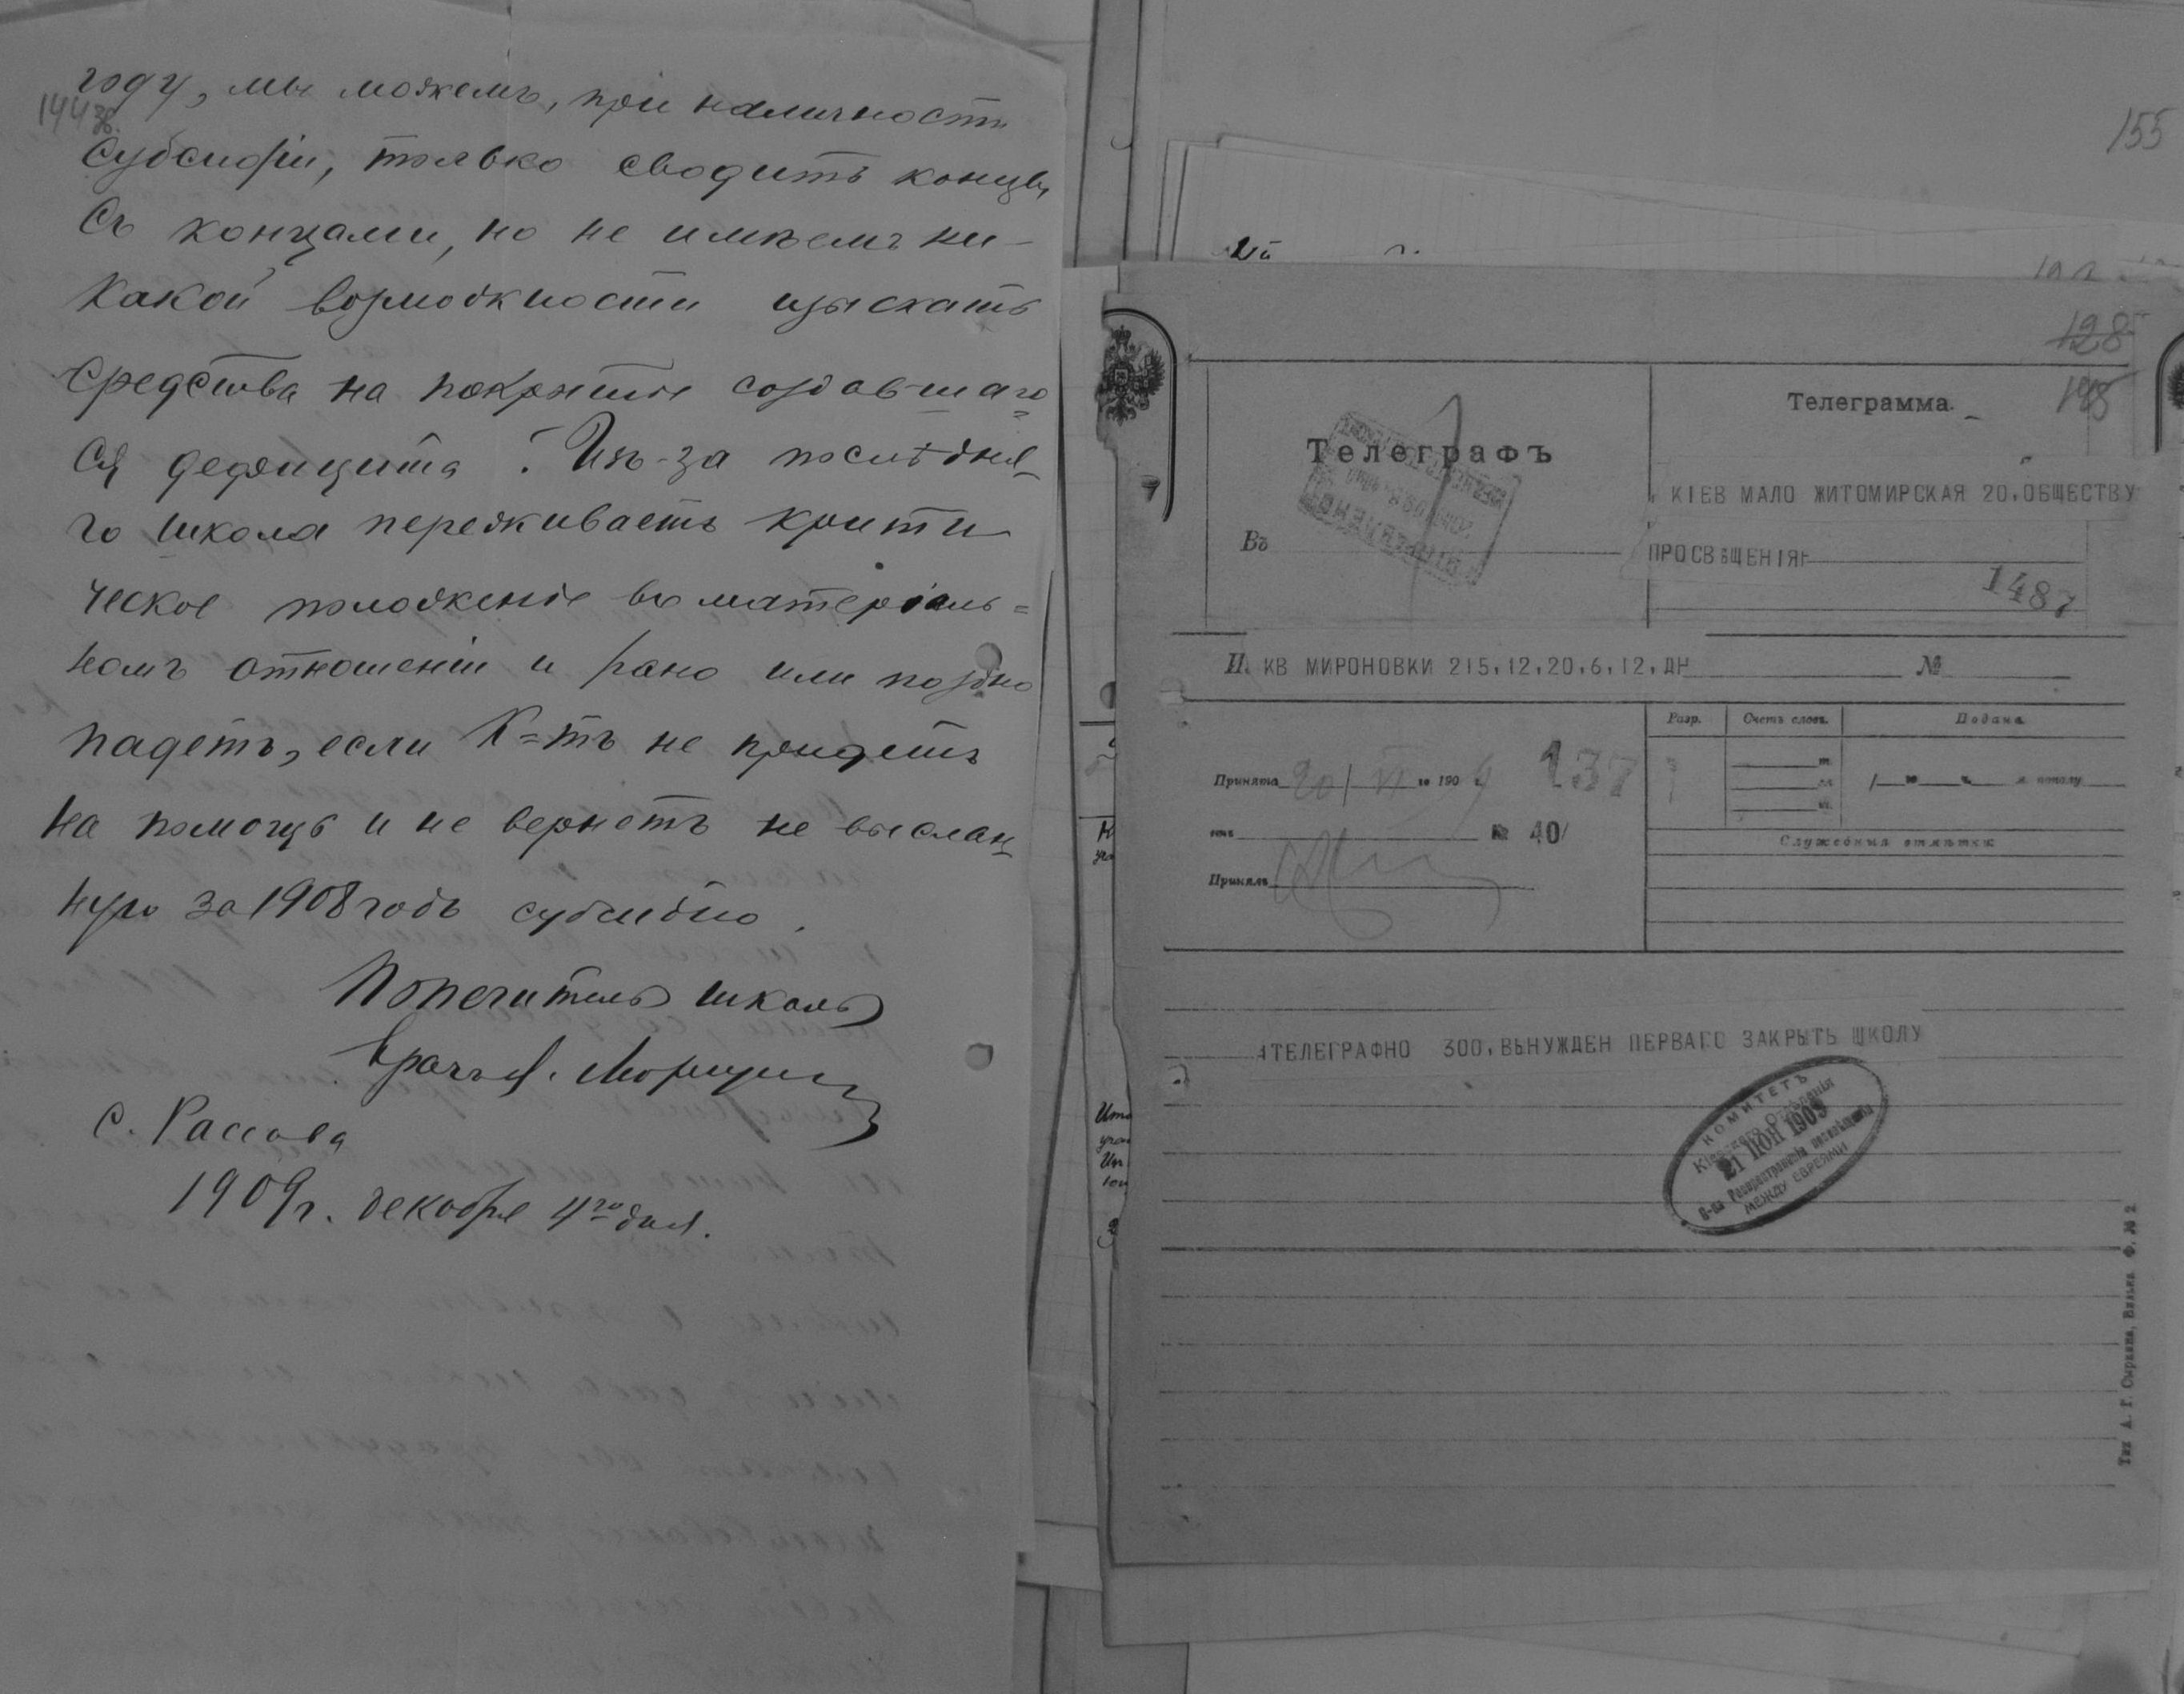 144 зв.
году, мы можемъ, при наличности
субсидіи, только сводить концы
съ концами, но не имѣемъ ни-
какой возможности изыскать
средства на покрытіе создавшаго=
ся дефицита. Изъ-за послѣдня-
го школа переживаетъ крити
ческое положеніе въ матеріаль=
номъ отношеніи и рано или поздно
падетъ, если К=тъ не придетъ
на помощь и не вернетъ не выслан
ную за 1908 годъ субсидію.
Попечитель школы
Врачъ
с. Рассова
1909 г. декабря 4го дня.
155
128
148
Телеграфъ
Въ
Телеграмма.
КІЕВ МАЛО ЖИТОМИРСКАЯ 20.ОБЩЕСТВУ
ПРОСВѢЩЕНІЯ
1487
КВ МИРОНОВКИ 215,12,20,6,12,ДН
№
Разр.
Счетъ словъ.
Подана
Принята 20/VI го 1909 г.
137
№ 40/
Служебныя отмѣтки:
Принялъ
ТЕЛЕГРАФНО 300.ВЫНУЖДЕН ПЕРВАГО ЗАКРЫТЬ ШКОЛУ
КОМИТЕТЪ
Кіевскаго Отдѣленія
21 ІЮН 1909
О-ва Распространенія просвѣщенія
МЕЖДУ ЕВРЕЯМИ
Тип. А. Г. Сыркина, Вильна. Ф. № 2